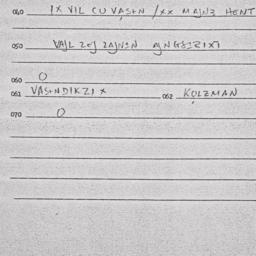 040 IX VIL CU VASƐN /XX MAJNƐ HENT
050 VAJL ZEJ ZAJNƐN
060 O
061 VASƐNDIKZI X 062 KOLZMAN
070 O